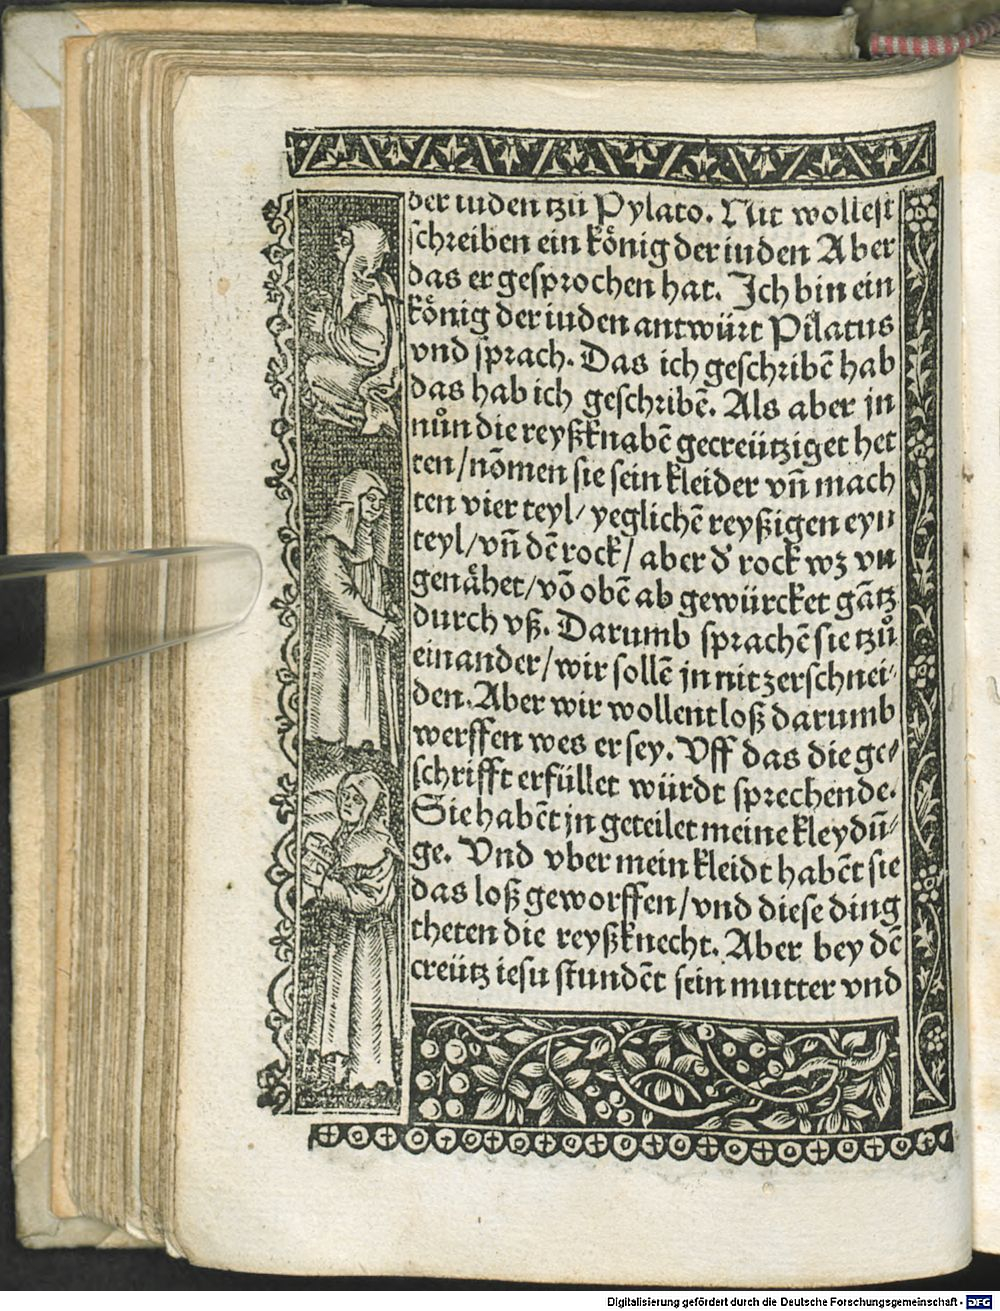 der iuden tzů Pylato. Nit wollest
schreiben ein kőnig der iuden Aber
das er gesprochen hat. Ich bin ein
kőnig der iuden antwürt Pilatus
vnd sprach. Das ich geschribē hab
das hab ich geschribē. Als aber jn
nůn die reyßknabē gecreütziget het
ten/nōmen sie sein kleider vn̄ mach
ten vier teyl/yeglichē reyßigen eyn
teyl/vn̄ dē rock/aber d' rock wz vn
genähet/vō obē ab gewürcket gātz
durch vß. Darumb sprachē sie tzů
einander/wir sollē jn nit zerschnei⸗
den. Aber wir wollent loß darumb
werffen wes er sey. Vff das die ge⸗
schrifft erfüllet würdt sprechende.
Sie habēt jn geteilet meine kleydū⸗
ge. Vnd vber mein kleidt habēt sie
das loß geworffen/vnd diese ding
theten die reyßknecht. Aber bey dē
creütz iesu stundēt sein mutter vnd
Digitalisierung gefördert durch die Deutsche Forschungsgemeinschaft - DFG